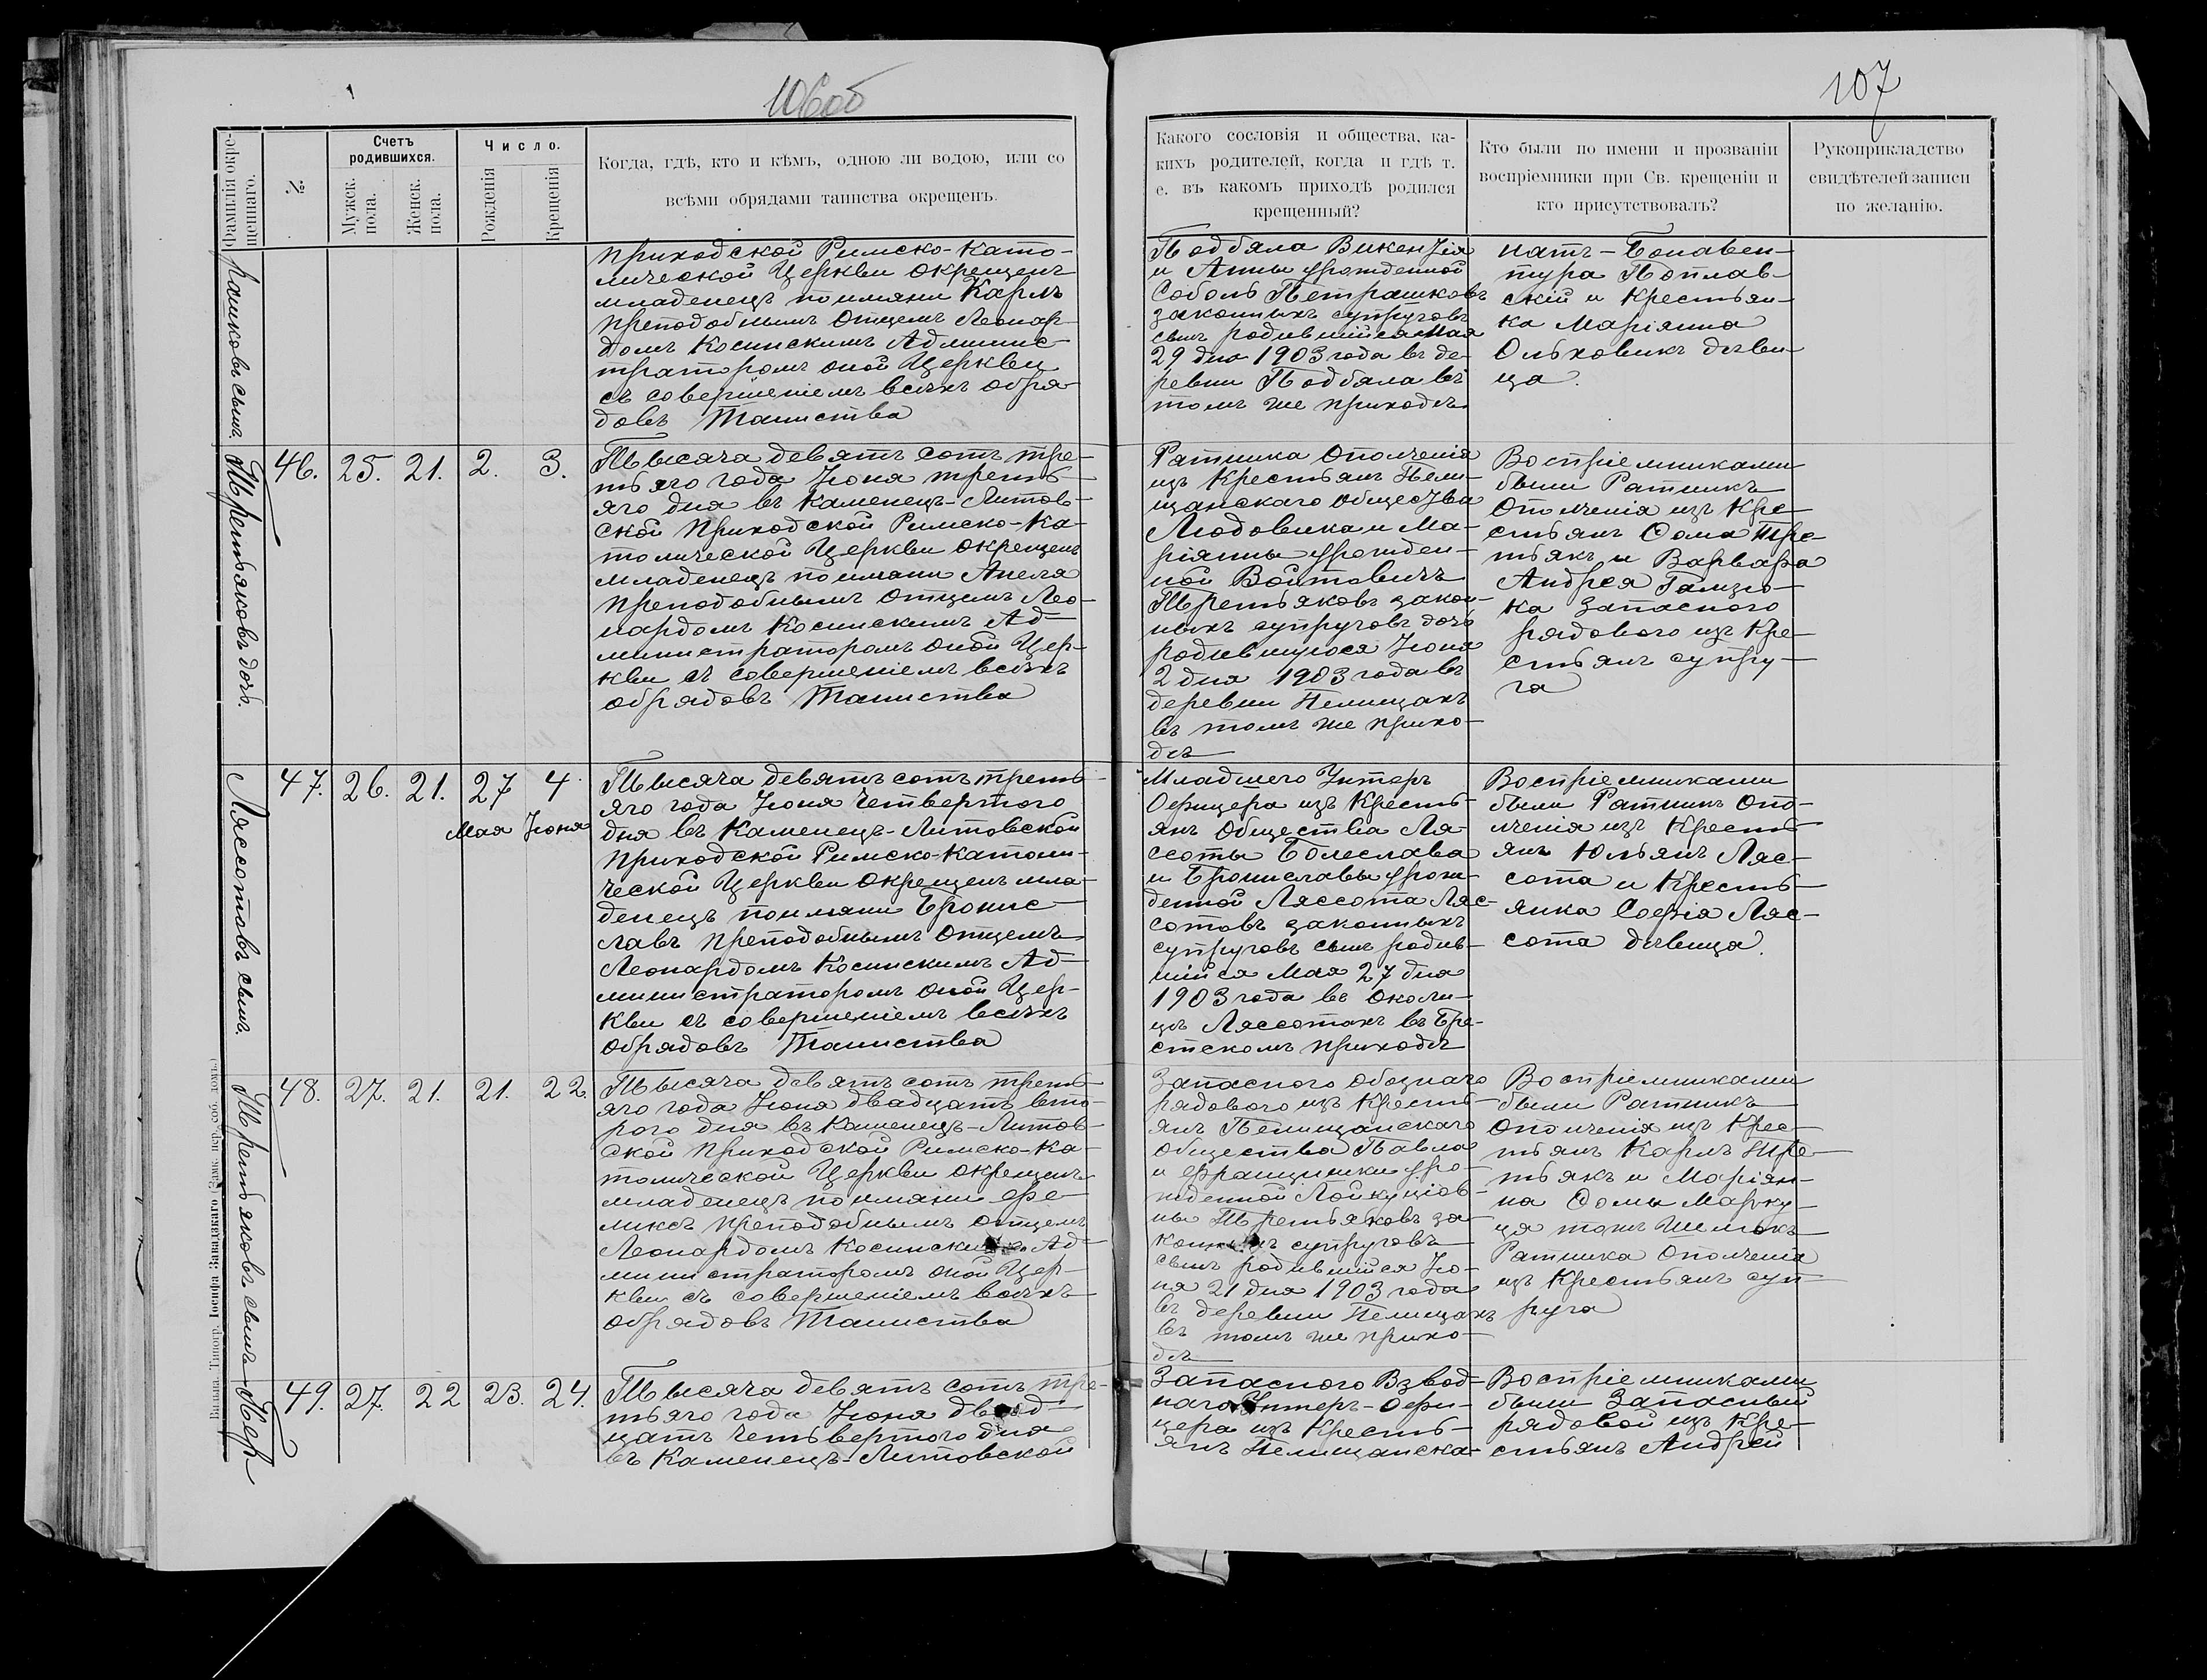 106об
107
Фамилія окре-
щеннаго.
№
Счетъ
родившихся.
Мужск.
пола.
Женск.
пола.
Число.
Рожденія
Крещенія
Когда, гдѣ, кто и кѣмъ, одною ли водою, или со
всѣми обрядами таинства окрещенъ.
Какого сословія и общества, ка-
кихъ родителей, когда и гдѣ т.
е. въ какомъ приходѣ родился
крещенный?
Кто были по имени и прозванію
воспріемники при Св. крещеніи и
кто присутствовалъ?
Рукоприкладство
свидѣтелей записи
по желанію.
рашковъ сынъ.
приходской Римско-Като-
лической Церкви окрещенъ
младенецъ по имяни Карлъ
преподобнымъ отцемъ Леонар-
домъ Косинскимъ Админис-
траторомъ оной Церкви
съ совершеніемъ всѣхъ обря-
довъ Таинства
Подбяла Викентія
и Анны урожденной
Соболь Петрашковъ
законныхъ супруговъ
сынъ родившійся Мая
29 дня 1903 года въ де-
ревни Подбяла въ
томъ же приходѣ
натъ-Бонавен-
тура Поплав-
скій и Крестьян-
ка Маріянна
Ольховикъ дѣви-
ца.
Третьяковъ дочь.
46. 25. 21. 2. 3.
Тысяча девятъ сотъ тре-
тьяго года Іюня треть-
яго дня въ Каменецъ-Литов-
ской Приходской Римско-Ка-
толической Церкви окрещенъ
младенецъ по имяни Анеля
преподобнымъ отцемъ Лео-
нардомъ Косинскимъ Ад-
министраторомъ оной Цер-
кви съ совершеніемъ всѣхъ
обрядовъ Таинства
Ратника Ополченія
изъ Крестьянъ Пели-
щанскаго общества
Людовика и Ма-
ріянны урожден-
ной Войтовичъ
Третьяковъ закон-
ныхъ супруговъ дочь
родившуюся Іюня
2 дня 1903 года въ
деревни Пелищахъ
въ томъ же прихо-
дѣ
Воспріемниками
были Ратникъ
Ополченія изъ Кре-
стьянъ Ѳома Тре-
тьякъ и Варвара
Андрея
ка Запаснаго
рядового изъ Кре-
стьянъ супру-
га
Ляссотовъ сынъ.
47. 26. 21. 27 4
Мая Іюня
Тысяча девятъ сотъ треть-
яго года Іюня четвертого
дня въ Каменецъ-Литовской
приходской Римско-Католи-
ческой Церкви окрещенъ мла-
денецъ по имяни Бронис-
лавъ преподобнымъ отцемъ
Леонардомъ Косинскимъ Ад-
министраторомъ оной Цер-
кви съ совершеніемъ всѣхъ
обрядовъ Таинства
Младшего Унтеръ
Офицера изъ Кресть-
янъ общества Ля-
ссоты Болеслава
и Брониславы урож-
денной Ляссота Ляс-
сотовъ законныхъ
супруговъ сынъ родив-
шійся Мая 27 дня
1903 года въ околи-
цѣ Ляссотахъ въ Бре-
стскомъ приходѣ
Воспріемниками
были Ратникъ Опо-
лченія изъ Кресть-
янъ Юльянъ Ляс-
сота и Кресть-
янка Софія Ляс-
сота дѣвица.
Третьяковъ сынъ
48. 27. 21. 21. 22.
Тысяча девятъ сотъ треть-
яго года Іюня двадцатъ вто-
рого дня въ Каменецъ-Литов-
ской приходской Римско-Ка-
толической Церкви окрещенъ
младенецъ по имяни Фе-
ликсъ преподобнымъ отцемъ
Леонардомъ Косинскимъ Ад-
министраторомъ оной Цер-
кви съ совершеніемъ всѣхъ
обрядовъ Таинства
Запасного обознаго
рядового изъ Кресть-
янъ Пелищанскаго
общества Павла
и Францишки уро-
жденной
ны Третьяковъ за-
конныхъ супруговъ
сынъ родившійся Ію-
ня 21 дня 1903 года
въ деревни Пелищахъ
въ томъ же прихо-
дѣ
Воспріемниками
были Ратникъ
Ополченія изъ Крес-
тьянъ Карлъ Тре-
тьякъ и Маріян-
на Ѳомы
Ратника Ополченія
изъ Крестьянъ суп-
руга
Пер
49. 27. 22 23. 24.
Тысяча девятъ сотъ тре-
тьяго года Іюня двад-
цатъ четвертого дня
въ Каменецъ-Литовской
Запасного Взвод-
наго Унтеръ-Офи-
цера изъ Кресть-
янъ Пелищанска-
Воспріемниками
были Запасный
рядовой изъ Кре-
стьянъ Андрей
Вильна. Типогр. Іосифа Завадзкаго